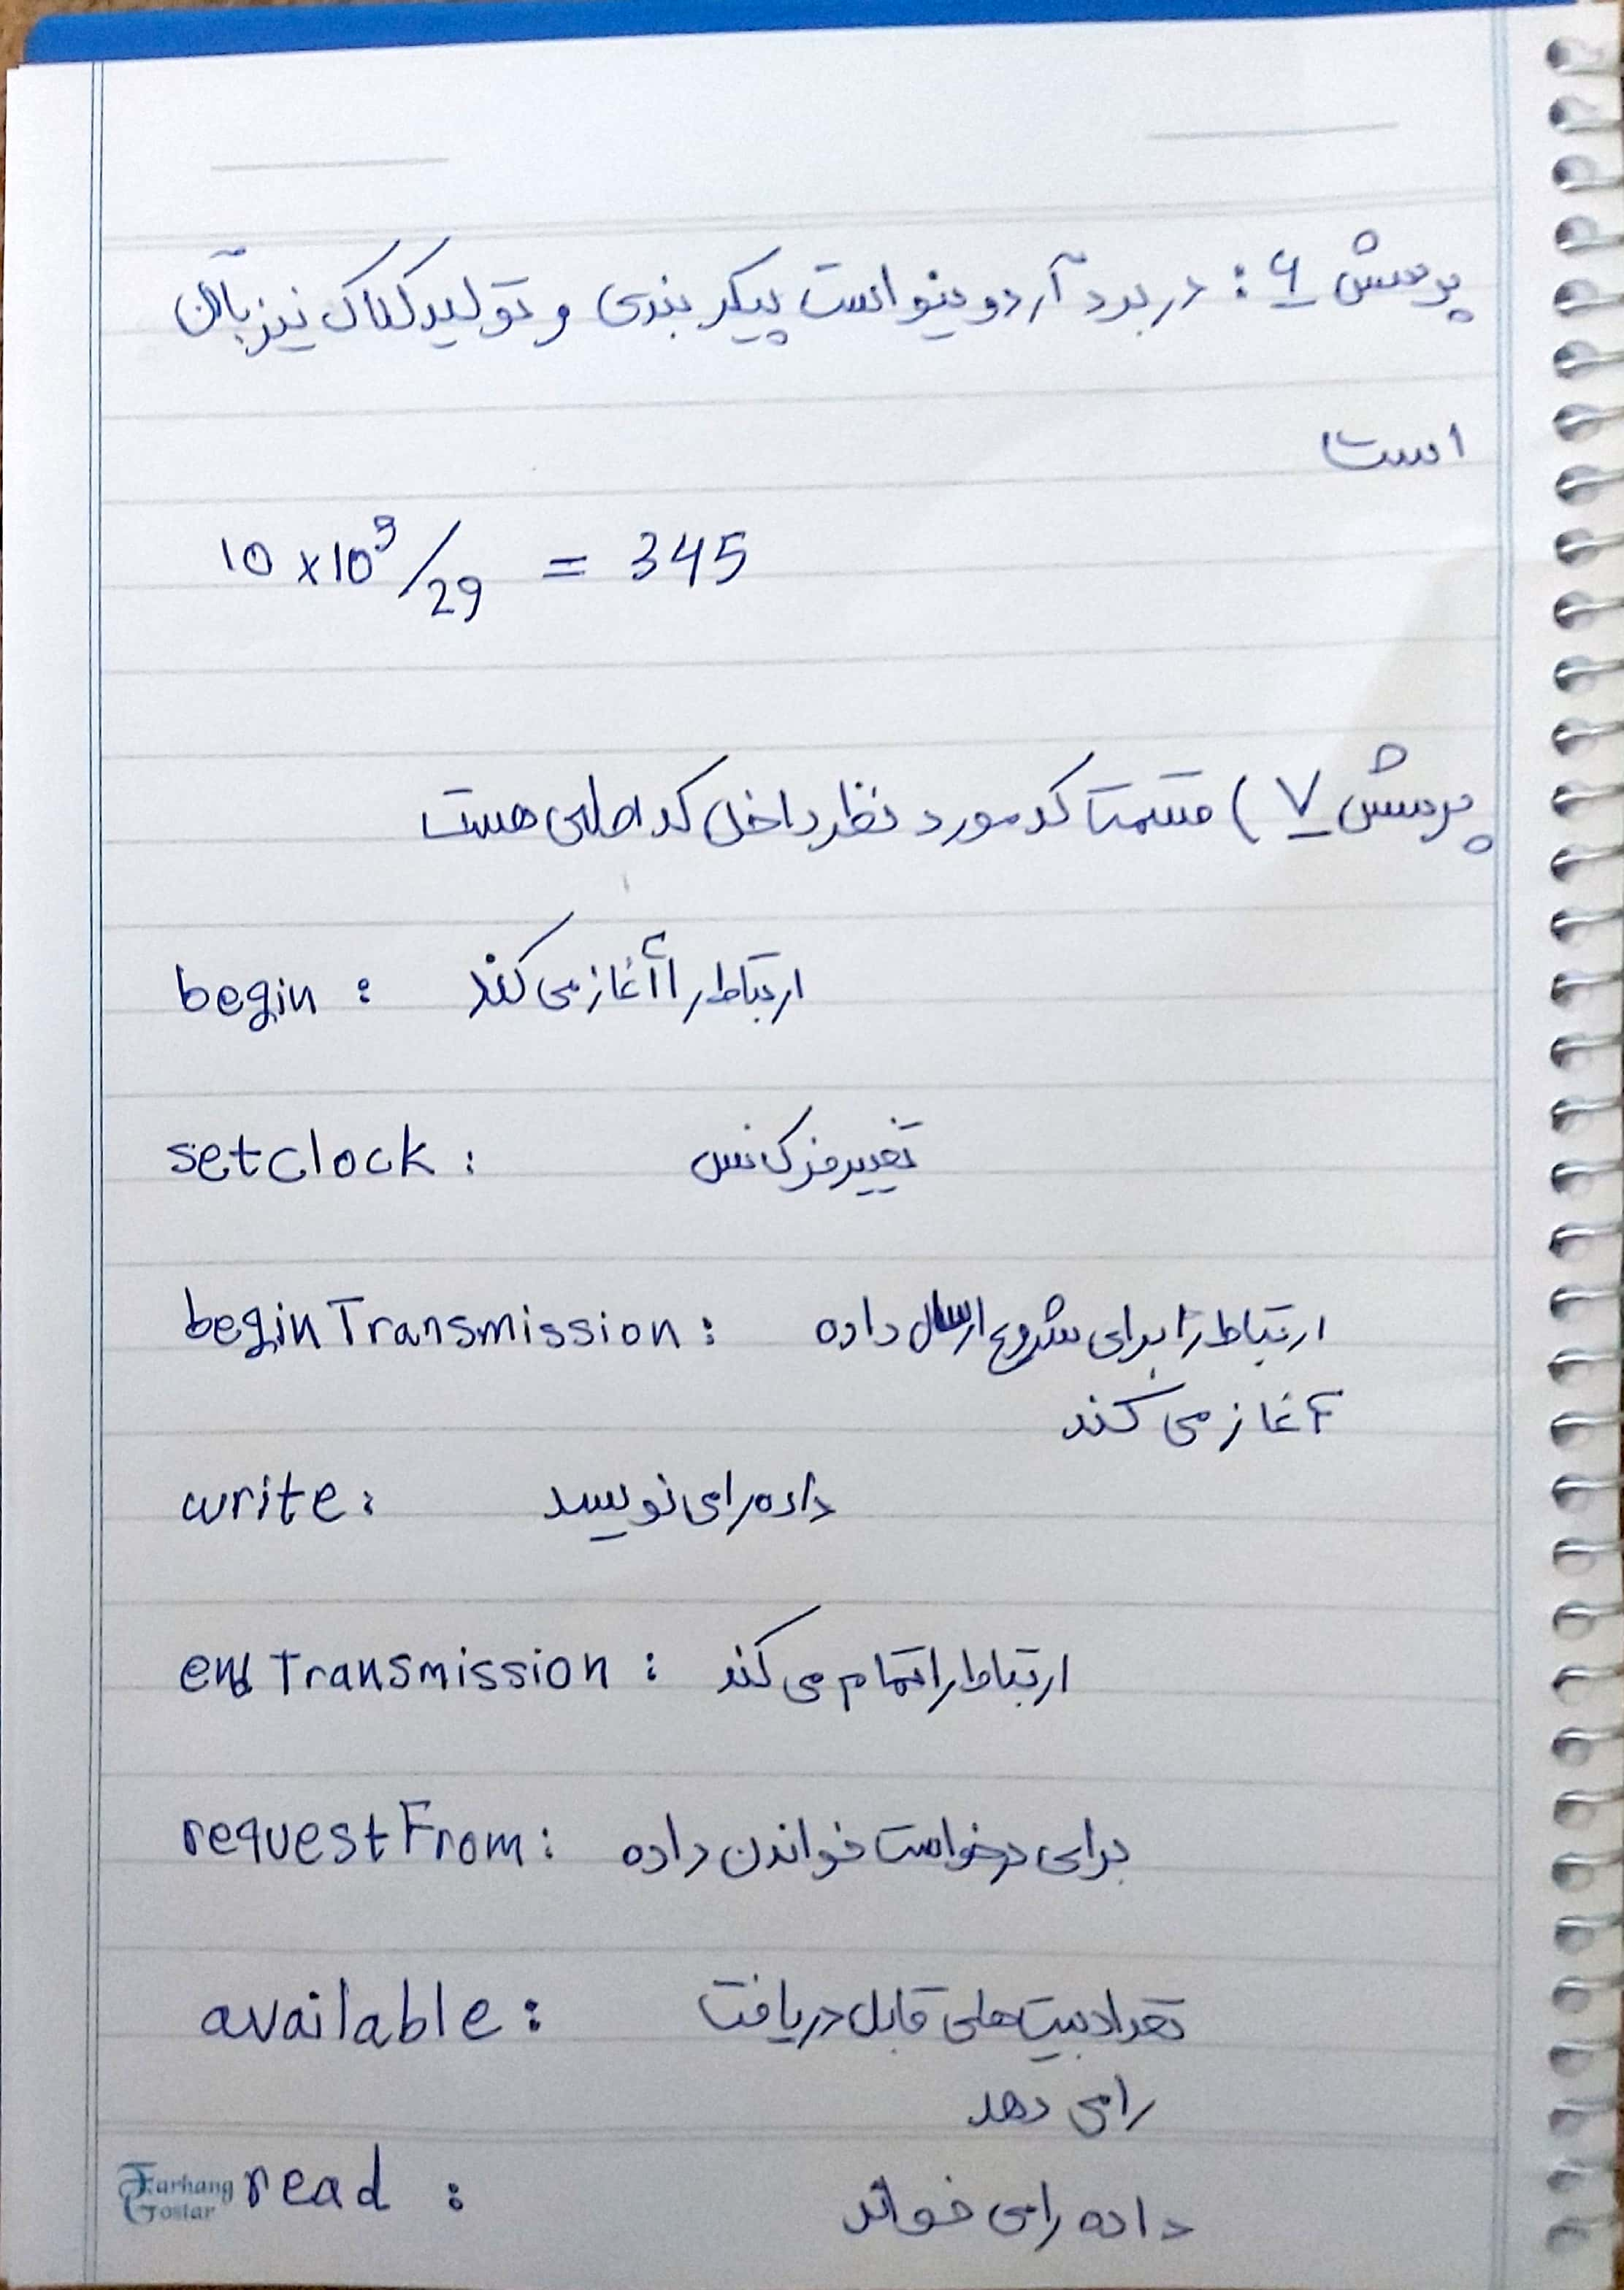 پرسش ۶: در برد آردوینو است پیکربندی و تولید کلاک نیز با آن
است
10 x10³/29 = 345
پرسش ۷) قسمت کد مورد نظر داخل کد اصلی هست
begin : ارتباط را آغاز می کند
setclock : تغییر فرکانس
beginTransmission : ارتباط را برای شروع ارسال داده
آغاز می کند
write : داده را می نویسد
endTransmission : ارتباط را تمام می کند
requestFrom : برای درخواست خواندن داده
available : تعداد بیت های قابل دریافت
را می دهد
read : داده را می خواند
Farhang
Gostar